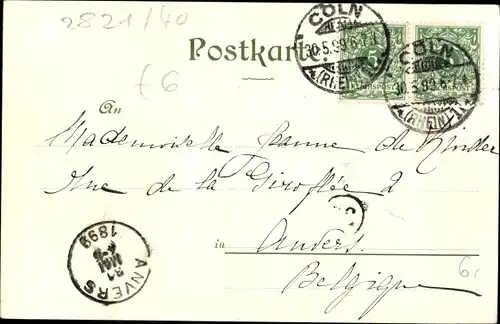 2821/40
Postkarte
CÖLN
30.5.99.6-7 N
(RHEIN)
CÖLN
30.5.99.6-7 N
(RHEIN)
5
£6
An
Mademoiselle Jeanne de Kinder
Rue de la Giroflée 2
in Anvers
Belgique
ANVERS
31
MAI
1899
6.